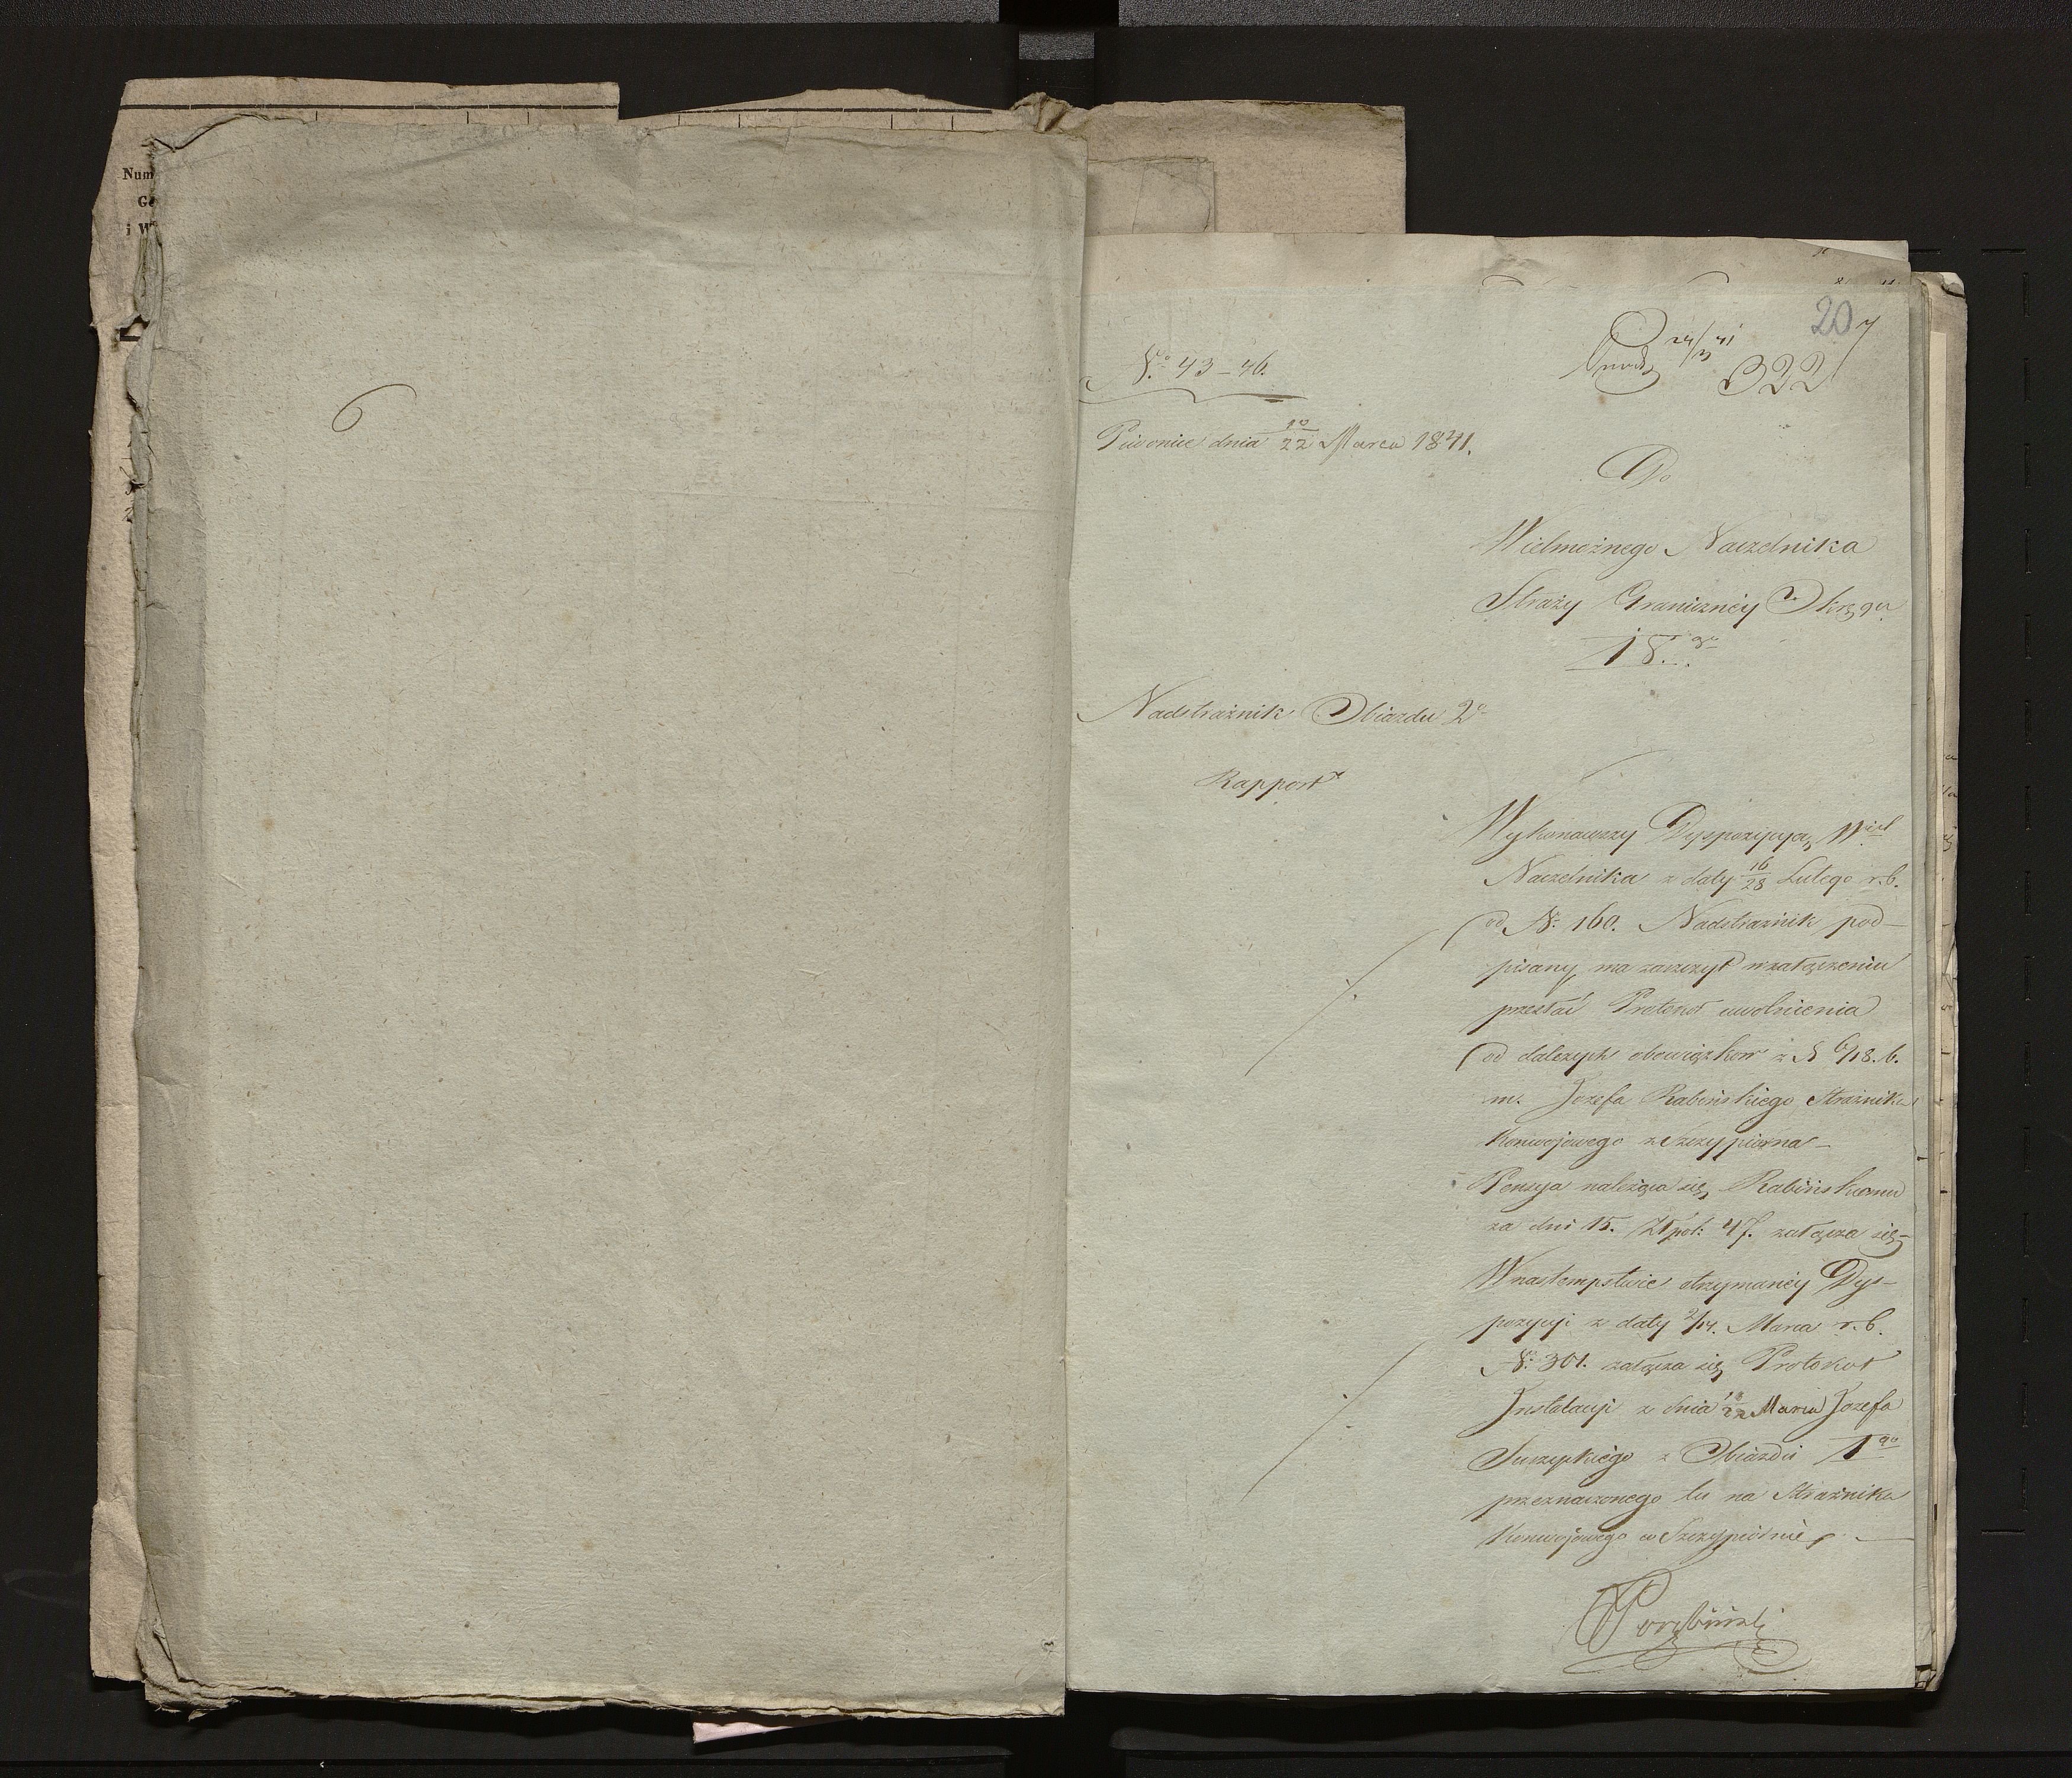 Num
Ge
i W
6
20 7
24/3 41
322
Nº 43-46.
Piwonice dnia 10/22 Marca 1841.
Do
Wielmożnego Naczelnika
Straży Graniczney Okręgu
18.go
Nadstrażnik Obiazdu 2º
Rapport
Wykonawszy Dyspozycyą Wiel
Naczelnika z daty 16/28 Lutego r.b.
od Nº 160. Nadstrażnik pod-
pisany ma zaszczyt w załączeniu
przesłać Protokół uwolnienia
od dalszych obowiązków z d 6/18. b.
m. Jozefa Rabińskiego Strażnika
Konwojowego z Szczypiorna -
Pensya należąca się Rabińskiemu
za dni 15. Złpol: 47. załącza się -
W nastempstwie otrzymaney Dys-
pozycyi z daty 2/14. Marca r.b.
Nº 301. załącza się Protokół
Instalacyi z dnia 10/22 Marca Jozefa
z Obiazdu 1go
przeznaczonego tu na Strażnika
Konwojowego w Szczypiornie